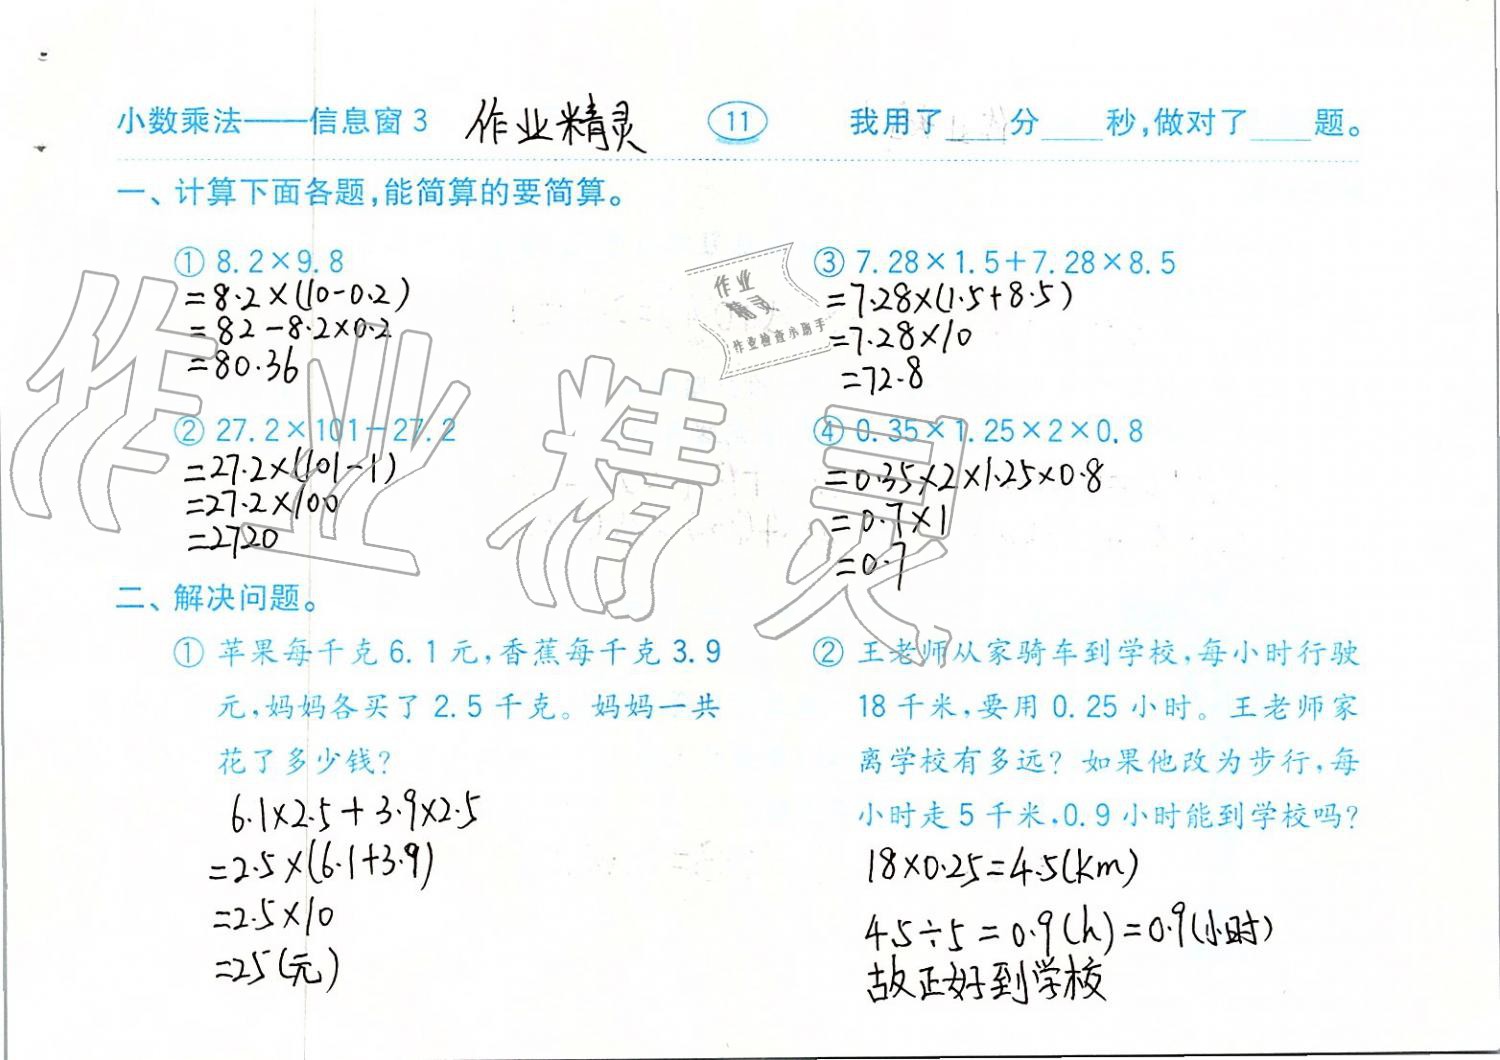 小数乘法——信息窗3 作业精灵 11 我用了____分____秒,做对了____题。
一、计算下面各题,能简算的要简算。
① 8.2×9.8
=8.2×(10-0.2)
=82-8.2×0.2
=80.36
② 27.2×101-27.2
=27.2×(101-1)
=27.2×100
=2720
作业
精灵
作业检查小助手
③ 7.28×1.5+7.28×8.5
=7.28×(1.5+8.5)
=7.28×10
=72.8
④ 0.35×1.25×2×0.8
=0.35×2×1.25×0.8
=0.7×1
=0.7
作业精灵
二、解决问题。
① 苹果每千克6.1元,香蕉每千克3.9
元,妈妈各买了2.5千克。妈妈一共
花了多少钱?
6.1×2.5+3.9×2.5
=2.5×(6.1+3.9)
=2.5×10
=25(元)
② 王老师从家骑车到学校,每小时行驶
18千米,要用0.25小时。王老师家
离学校有多远?如果他改为步行,每
小时走5千米,0.9小时能到学校吗?
18×0.25=4.5(km)
4.5÷5=0.9(h)=0.9(小时)
故正好到学校